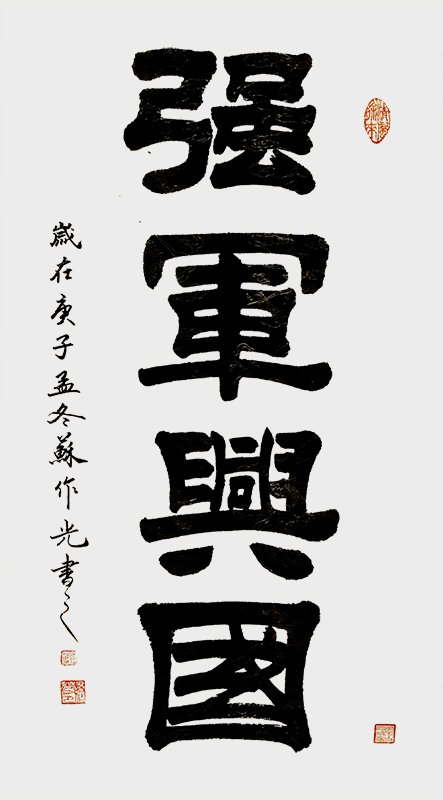 强軍興國
歲在庚子孟冬蘇作光書之